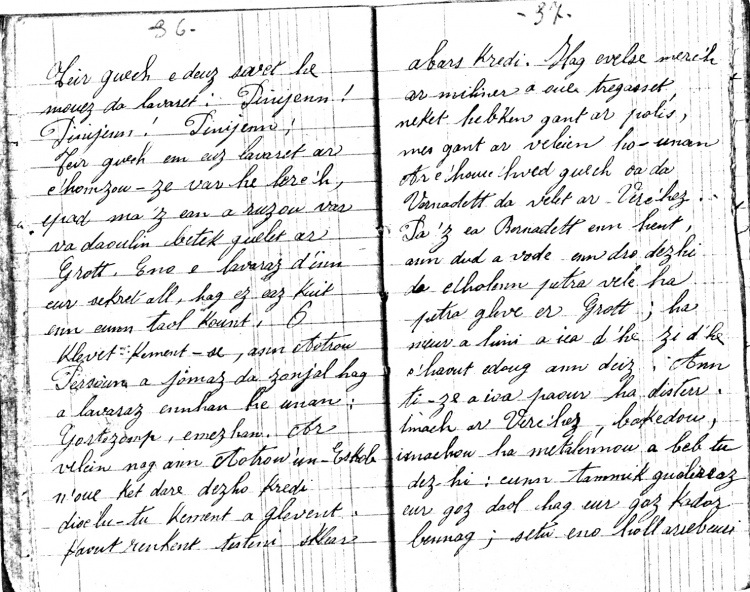 - 36 -
Teir guech e deuz savet he
mouez da lavaret : Pinijenn !
Pinijenn ! Pinijenn !
Teir guech em euz lavaret ar
c'homzou-ze var he lerc'h,
epad ma'z ean a ruzou var
va daoulin betek guelet ar
Grott. Eno e lavaraz d'éin
eur sekret all, hag ez eaz kuit
enn eunn taol kount. O
klevet kement-se, ann Aotrou
Person a jomaz da zonjal hag
a lavaraz ennhan he unan :
Gortozomp, emezhan. Ar
velein nag ann Aotrou'nn-Eskob
n'oue ket dare dezho kredi
dioc'htu-tu kement a glevent.
faout renkent testeni sklear
- 37 -
abars kredi. Hag evelse merc'h
ar miliner a oue tregasset,
neket hebken gant ar polis,
mes gant ar velein ho-unan
Ar c'houec'hved guech oa da
Vernadett da velet ar Verc'hez.
Pa'z ea Bernadett enn hent,
ann dud a vode enn dro dezhi
da c'houlenn petra vele ha
petra gleve er Grott ; ha
meur a hini a iea d'he zi d'he
c'haout edoug ann deiz. Ann
ti-ze a ioa paour ha disterr.
Imach ar Verc'hez, bokedou,
imachou ha metalennou a beb tu
dez-hi : eunn tammik gueleaz
eur goz daol hag eur goz kador
bennag ; setu eno holl arrebeuri